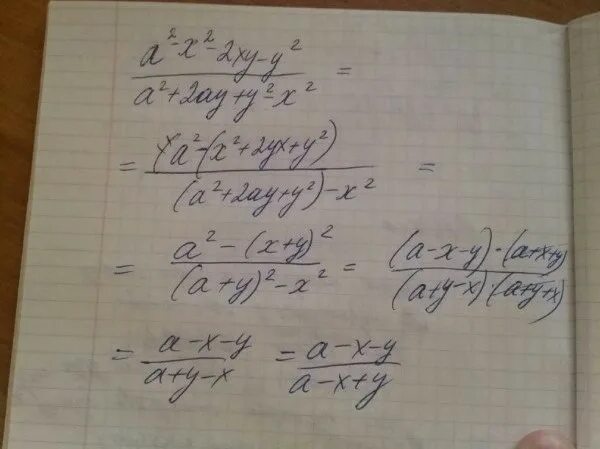 a²-x²-2xy-y² / a²+2ay+y²-x² =
= a²-(x²+2yx+y²) / (a²+2ay+y²)-x² =
= a²-(x+y)² / (a+y)²-x² = (a-x-y)·(a+x+y) / (a+y-x)·(a+y+x)
= a-x-y / a+y-x = a-x-y / a-x+y